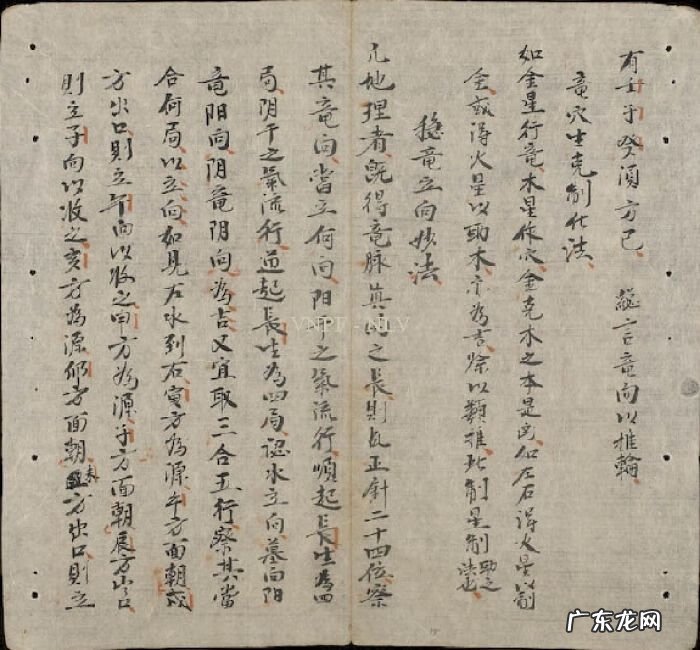 有壬子癸須方已　総言竜向以推輪
竜穴生克制化法
如金星行竜木星作穴金克木之本是凶如左右得火星以制
金或得火星以助木亦為吉餘以類推此制星制助之法也
穏竜立向妙法
凡地理者既得竜脉真穴之長則瓦正針二十四位察
其竜向當立何向阳干之氣流行順起長生為四
局阴干之氣流行逆起長生為四局認水立向墓向阳
竜阳向阴竜阴向為吉又宜取三合五行察其當
合何局以立向如見左水到右寅方為源午方面朝戌
方出口則立午向以收之申方為源子方面朝辰方出口
則立子向以收之亥方為源卯方面朝未方出口則立
VNPF - NLV
广东龙网